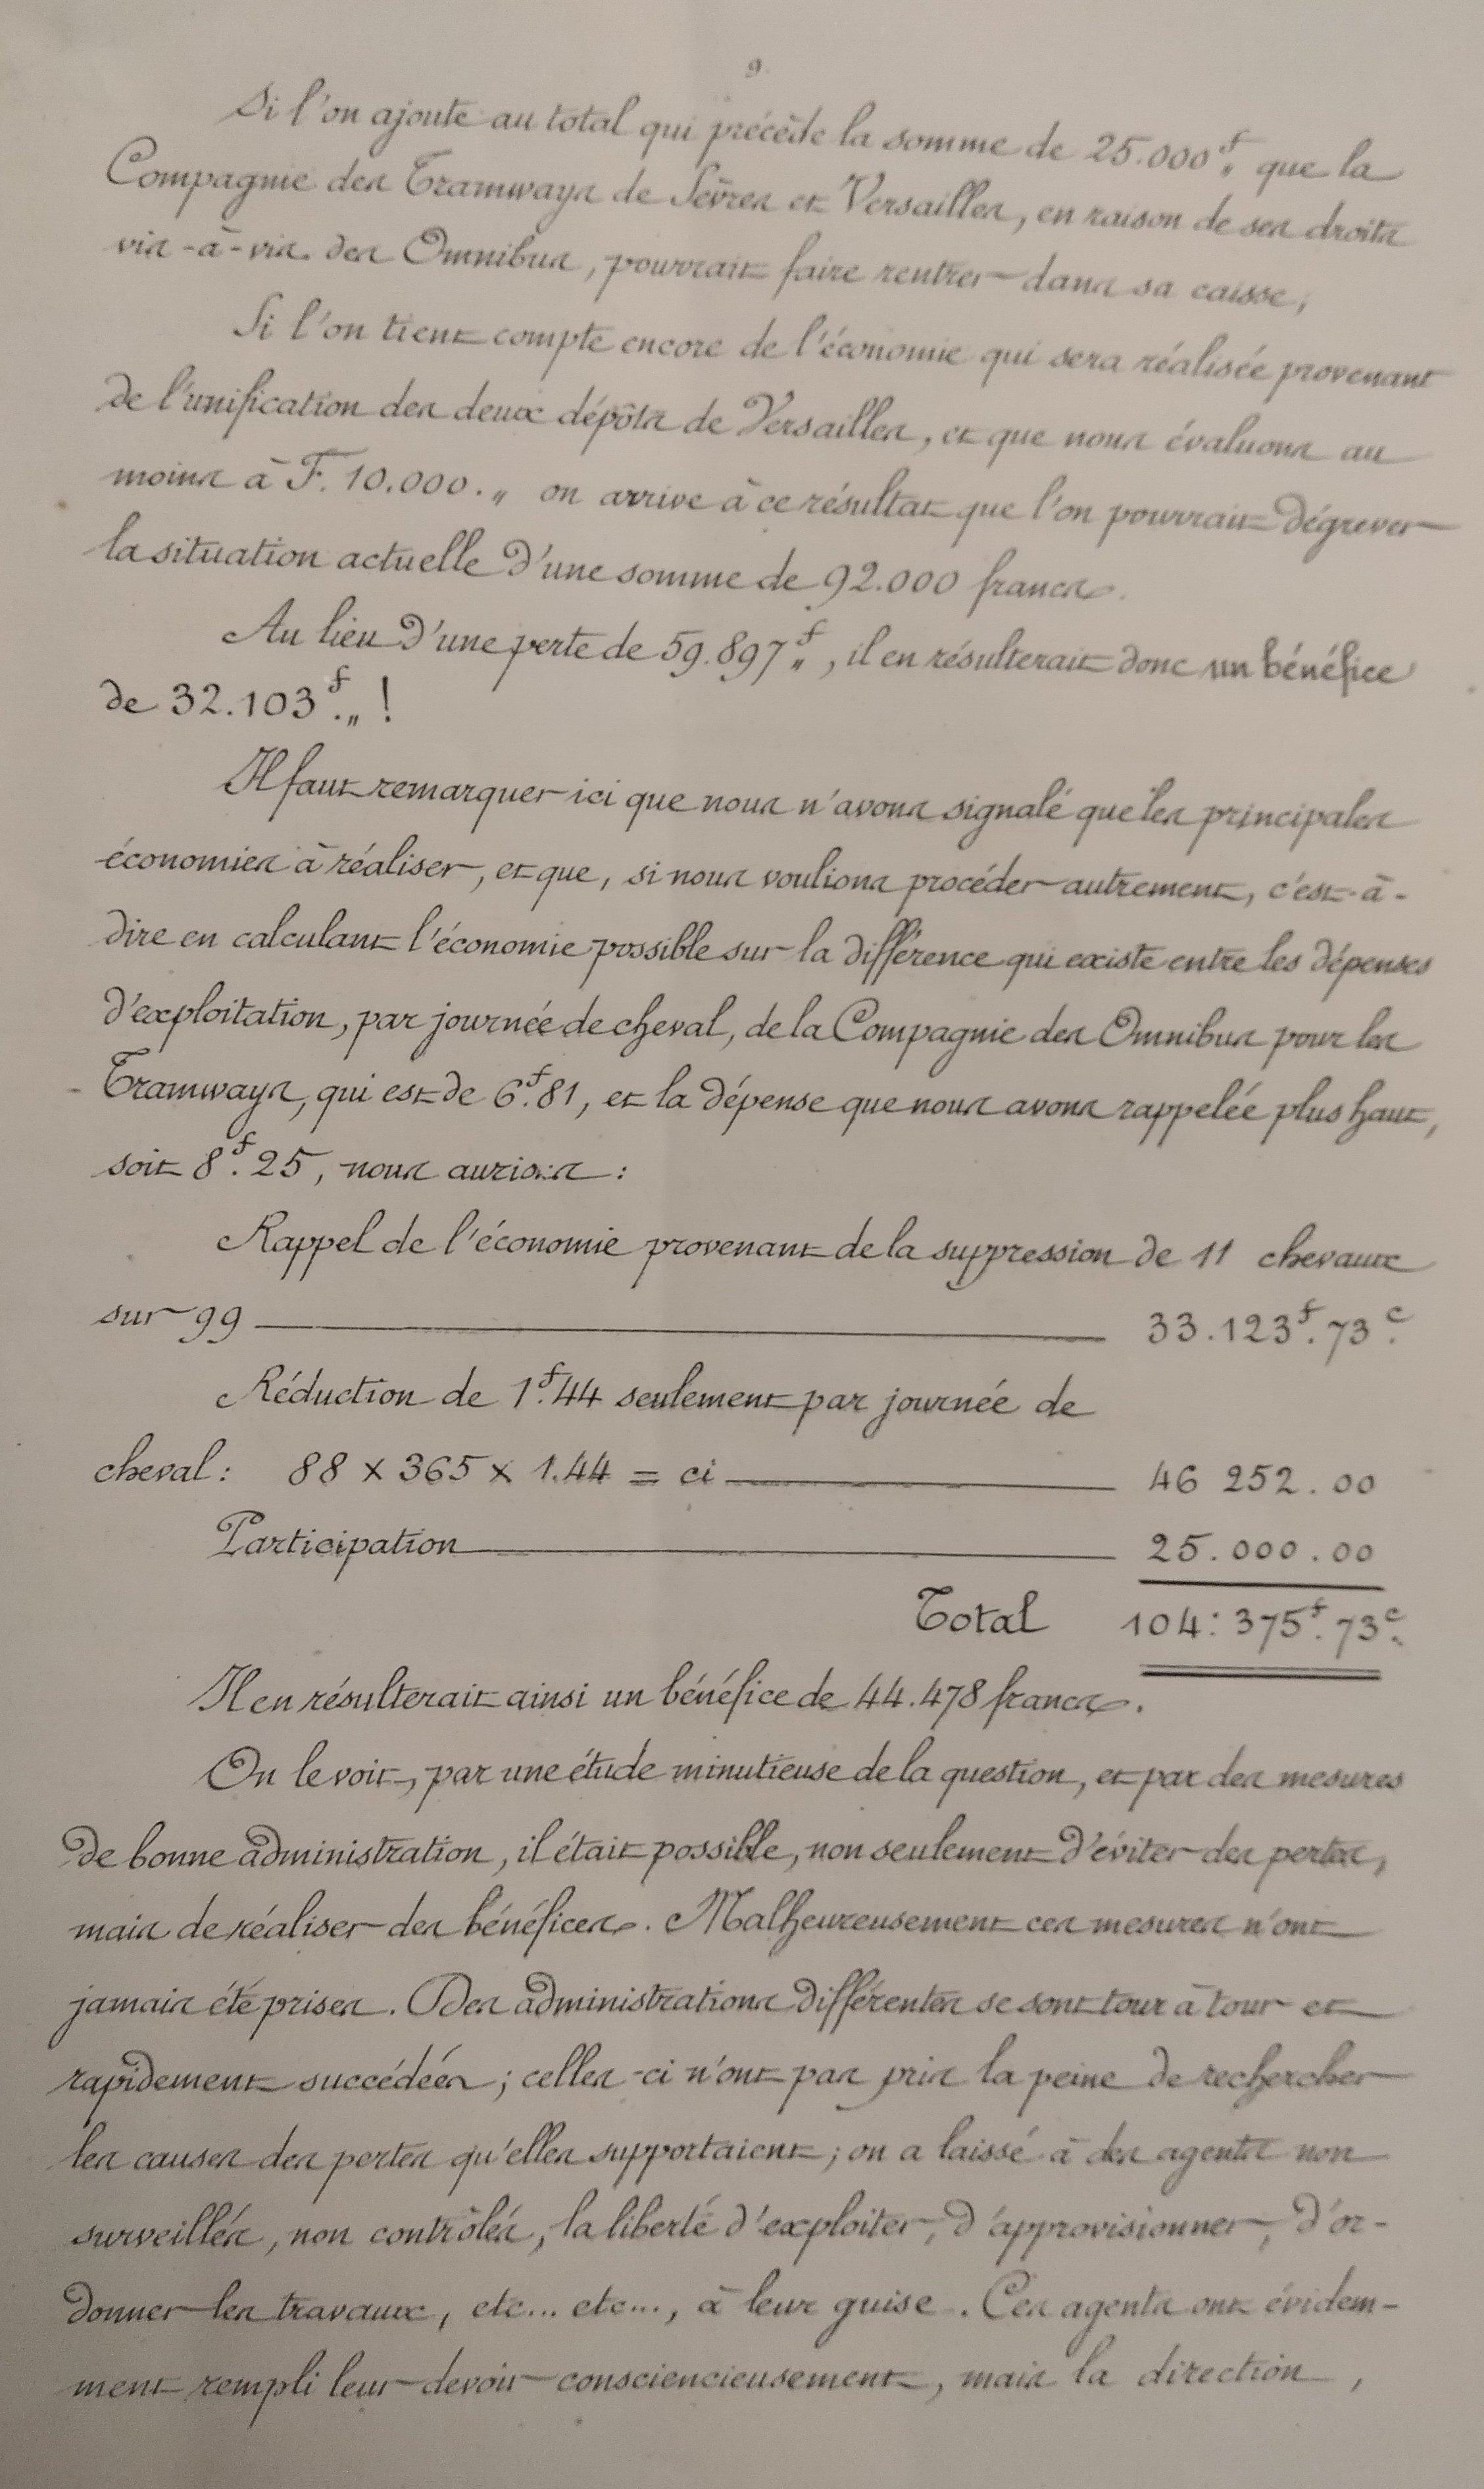 9.
Si l'on ajoute au total qui précède la somme de 25.000 f. „ que la
Compagnie des Tramways de Sèvres et Versailles, en raison de ses droits
vis-à-vis des Omnibus, pourrait faire rentrer dans sa caisse,
Si l'on tient compte encore de l'économie qui sera réalisée provenant
de l'unification des deux dépôts de Versailles, et que nous évaluons au
moins à F. 10.000. „ on arrive à ce résultat que l'on pourrait dégrever
la situation actuelle d'une somme de 92.000 francs.
Au lieu d'une perte de 59.897 f. „, il en résulterait donc un bénéfice
de 32.103 f. „ !
Il faut remarquer ici que nous n'avons signalé que les principales
économies à réaliser, et que, si nous voulions procéder autrement, c'est-à-
dire en calculant l'économie possible sur la différence qui existe entre les dépenses
d'exploitation, par journée de cheval, de la Compagnie des Omnibus pour les
Tramways, qui est de 6 f. 81, et la dépense que nous avons rappelée plus haut,
soit 8 f. 25, nous aurions :
Rappel de l'économie provenant de la suppression de 11 chevaux
sur 99 33.123 f. 73 c.
Réduction de 1 f. 44 seulement par journée de
cheval : 88 x 365 x 1.44 = ci 46 252.00
Participation 25.000.00
Total 104: 375 f. 73 c.
Il en résulterait ainsi un bénéfice de 44.478 francs.
On le voit, par une étude minutieuse de la question, et par des mesures
de bonne administration, il était possible, non seulement d'éviter des pertes,
mais de réaliser des bénéfices. Malheureusement ces mesures n'ont
jamais été prises. Des administrations différentes se sont tour à tour et
rapidement succédées ; celles-ci n'ont pas pris la peine de rechercher
les causes des pertes qu'elles supportaient ; on a laissé à des agents non
surveillés, non contrôlés, la liberté d'exploiter, d'approvisionner, d'or-
donner les travaux, etc... etc..., à leur guise. Ces agents ont évidem-
ment rempli leur devoir consciencieusement, mais la direction,